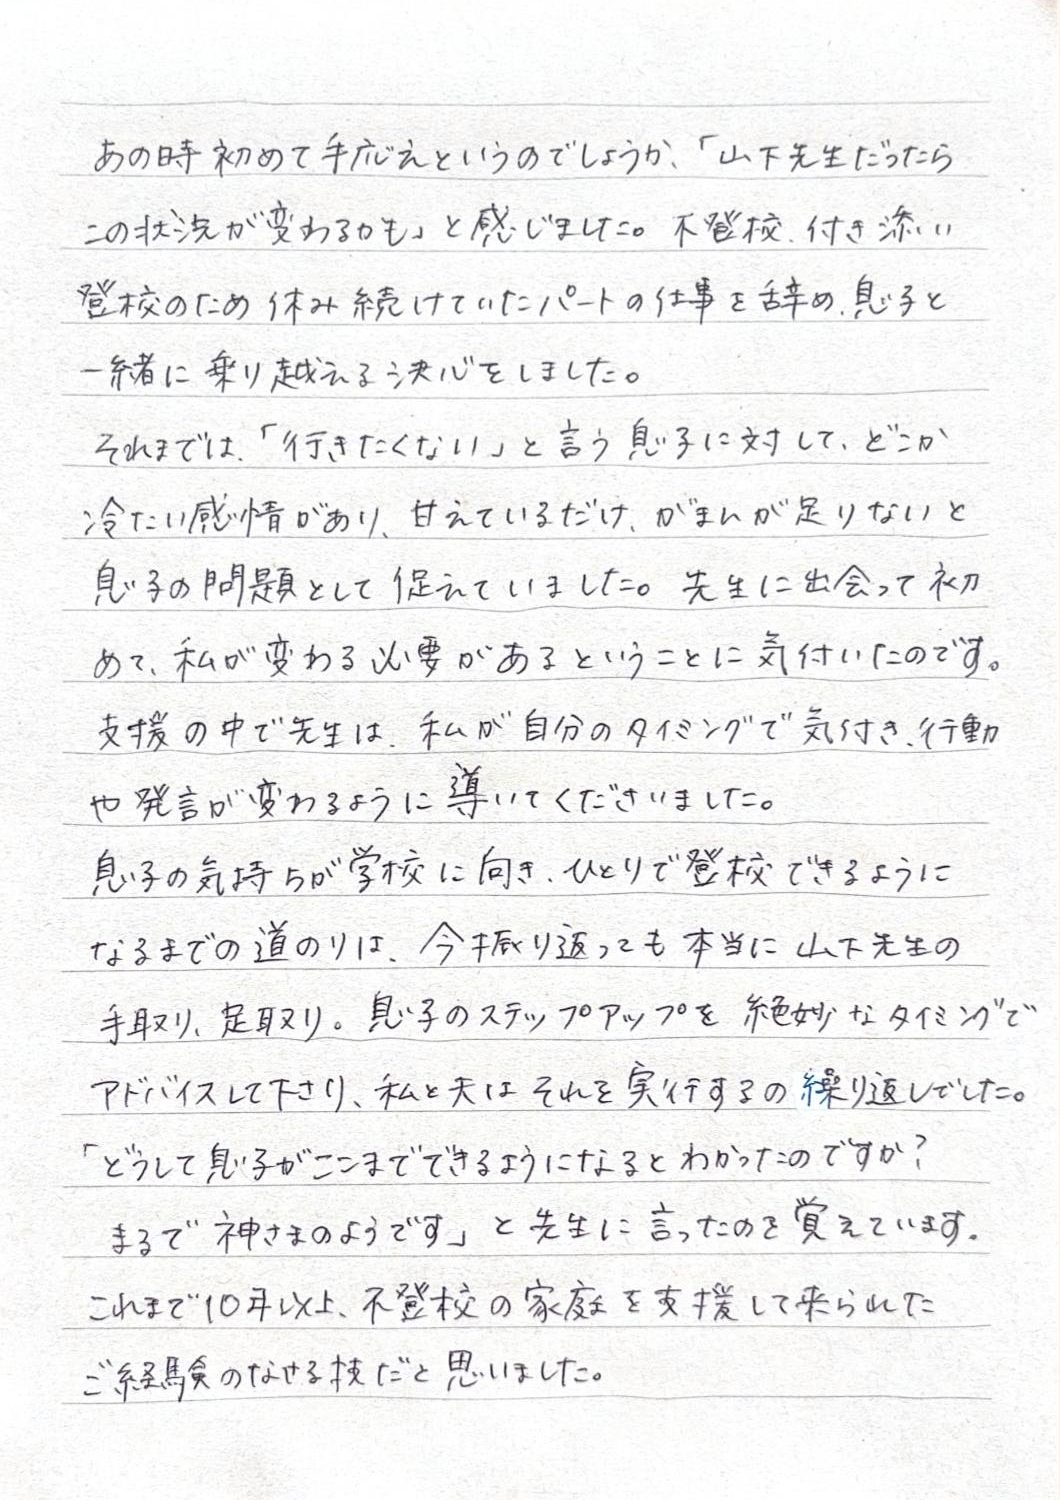 あの時初めて手応えというのでしょうか、「山下先生だったら
この状況が変わるかも」と感じました。不登校、付き添い
登校のため休み続けていたパートの仕事を辞め、息子と
一緒に乗り越える決心をしました。
それまでは、「行きたくない」と言う息子に対して、どこか
冷たい感情があり、甘えているだけ、がまんが足りないと
息子の問題として促えていました。先生に出会って初
めて、私が変わる必要があるということに気付いたのです。
支援の中で先生は、私が自分のタイミングで気付き、行動
や発言が変わるように導いてくださいました。
息子の気持ちが学校に向き、ひとりで登校できるように
なるまでの道のりは、今振り返っても本当に山下先生の
手取り、足取り。息子のステップアップを絶妙なタイミングで
アドバイスして下さり、私と夫はそれを実行するの繰り返しでした。
「どうして息子がここまでできるようになるとわかったのですか?
まるで神さまのようです」と先生に言ったのを覚えています。
これまで10年以上、不登校の家庭を支援して来られた
ご経験のなせる技だと思いました。